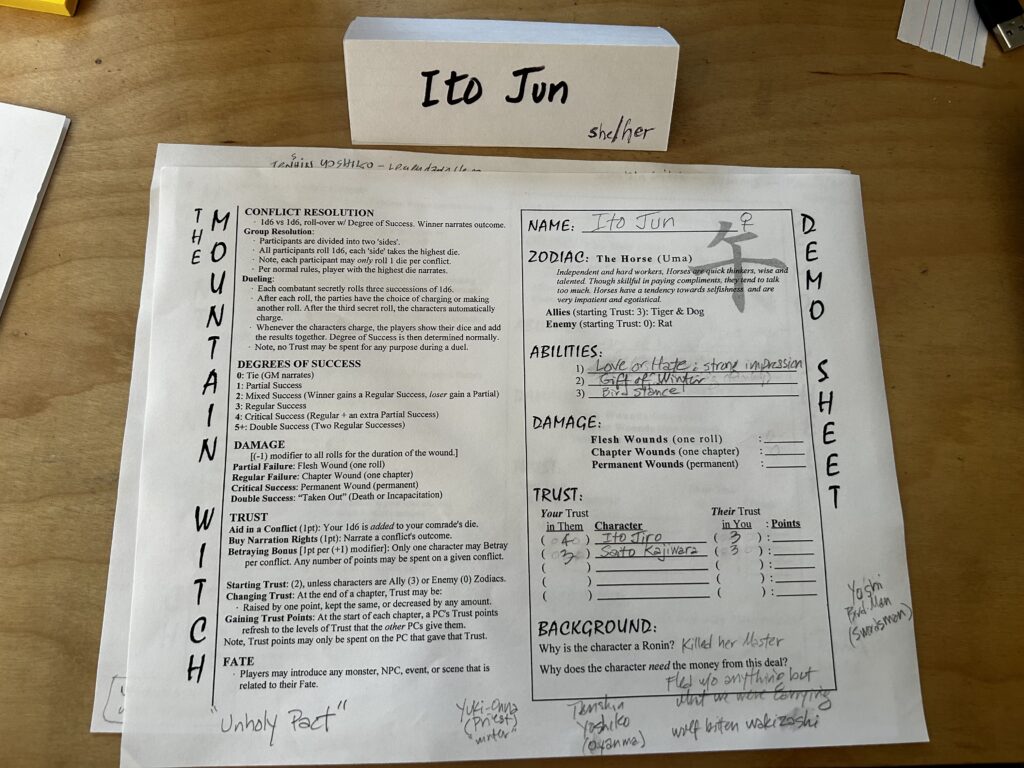 Ito Jun
she/her
YOSHIKO
THE MOUNTAIN WITCH
CONFLICT RESOLUTION
· 1d6 vs 1d6, roll-over w/ Degree of Success. Winner narrates outcome.
Group Resolution:
· Participants are divided into two 'sides'.
· All participants roll 1d6, each 'side' takes the highest die.
· Note, each participant may only roll 1 die per conflict.
· Per normal rules, player with the highest die narrates.
Dueling:
· Each combatant secretly rolls three successions of 1d6.
· After each roll, the parties have the choice of charging or making
another roll. After the third secret roll, the characters automatically
charge.
· Whenever the characters charge, the players show their dice and add
the results together. Degree of Success is then determined normally.
· Note, no Trust may be spent for any purpose during a duel.
DEGREES OF SUCCESS
0: Tie (GM narrates)
1: Partial Success
2: Mixed Success (Winner gains a Regular Success, loser gain a Partial)
3: Regular Success
4: Critical Success (Regular + an extra Partial Success)
5+: Double Success (Two Regular Successes)
DAMAGE
[(-1) modifier to all rolls for the duration of the wound.]
Partial Failure: Flesh Wound (one roll)
Regular Failure: Chapter Wound (one chapter)
Critical Success: Permanent Wound (permanent)
Double Success: "Taken Out" (Death or Incapacitation)
TRUST
Aid in a Conflict (1pt): Your 1d6 is added to your comrade's die.
Buy Narration Rights (1pt): Narrate a conflict's outcome.
Betraying Bonus [1pt per (+1) modifier]: Only one character may Betray
per conflict. Any number of points may be spent on a given conflict.
Starting Trust: (2), unless characters are Ally (3) or Enemy (0) Zodiacs.
Changing Trust: At the end of a chapter, Trust may be:
· Raised by one point, kept the same, or decreased by any amount.
Gaining Trust Points: At the start of each chapter, a PC's Trust points
refresh to the levels of Trust that the other PCs give them.
Note, Trust points may only be spent on the PC that gave that Trust.
FATE
· Players may introduce any monster, NPC, event, or scene that is
related to their Fate.
DEMO SHEET
NAME: Ito Jun ♀
午
ZODIAC: The Horse (Uma)
Independent and hard workers, Horses are quick thinkers, wise and
talented. Though skillful in paying compliments, they tend to talk
too much. Horses have a tendency towards selfishness and are
very impatient and egotistical.
Allies (starting Trust: 3): Tiger & Dog
Enemy (starting Trust: 0): Rat
ABILITIES:
1) Love or Hate: strong impression
2) Gift of Winter
3) Bird Stance
DAMAGE:
Flesh Wounds (one roll) :
Chapter Wounds (one chapter) :
Permanent Wounds (permanent) :
TRUST:
Your Trust Their Trust
in Them Character in You : Points
( 4 ) Ito Jiro ( 3 ) :
( 3 ) Saito Kajiwara ( 3 ) :
( ) ( ) :
( ) ( ) :
( ) ( ) :
BACKGROUND:
Why is the character a Ronin? Killed her Master
Why does the character need the money from this deal?
Fled w/o anything but
what we were carrying
wolf biten wakizashi
Yoshi
Bird Man
(Swordsman)
"Unholy Pact"
Yuki-Onna
(Priest)
Tenshin
Yoshiko